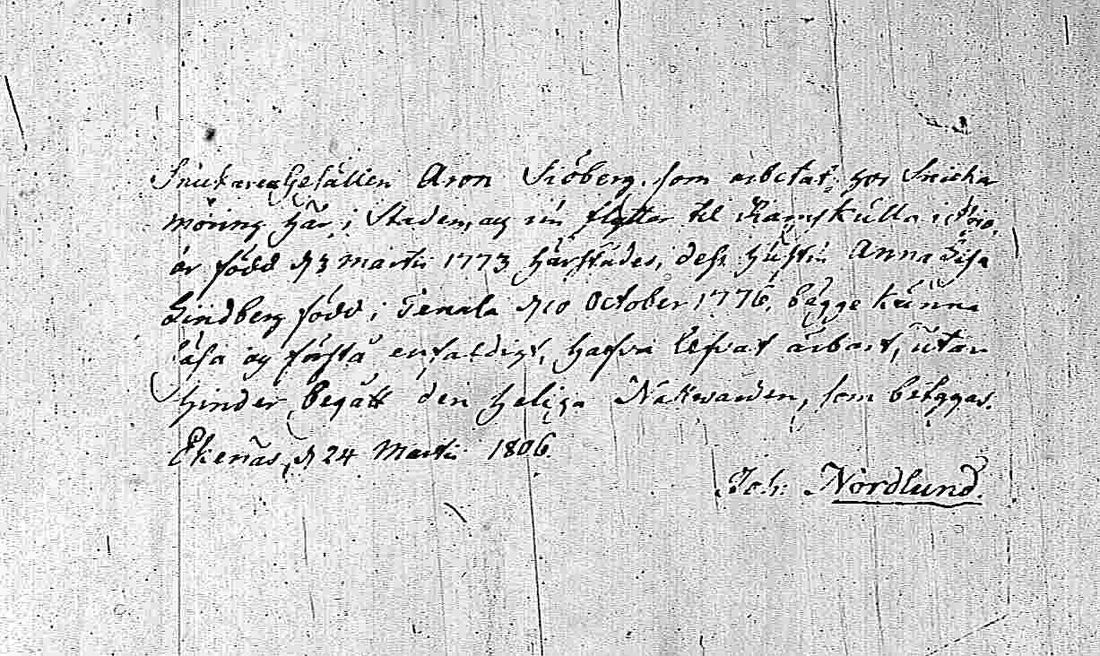 Snickaregesällen Aron Siöberg, som arbetat hos Snickar
möring här i Staden, og nu flyttar til Ramskulla i
är född d 3 martii 1773 härstädes, dess hustru Anna Lisa
Lindberg född i Tenala d 10 October 1776, bägge kunna
läsa og förstå enfaldigt, hafva lefvat ärbart, utan
hinder begått den heliga Nattvarden, som betygas.
Ekenäs, d 24 Martii 1806.
Joh: Nordlund.